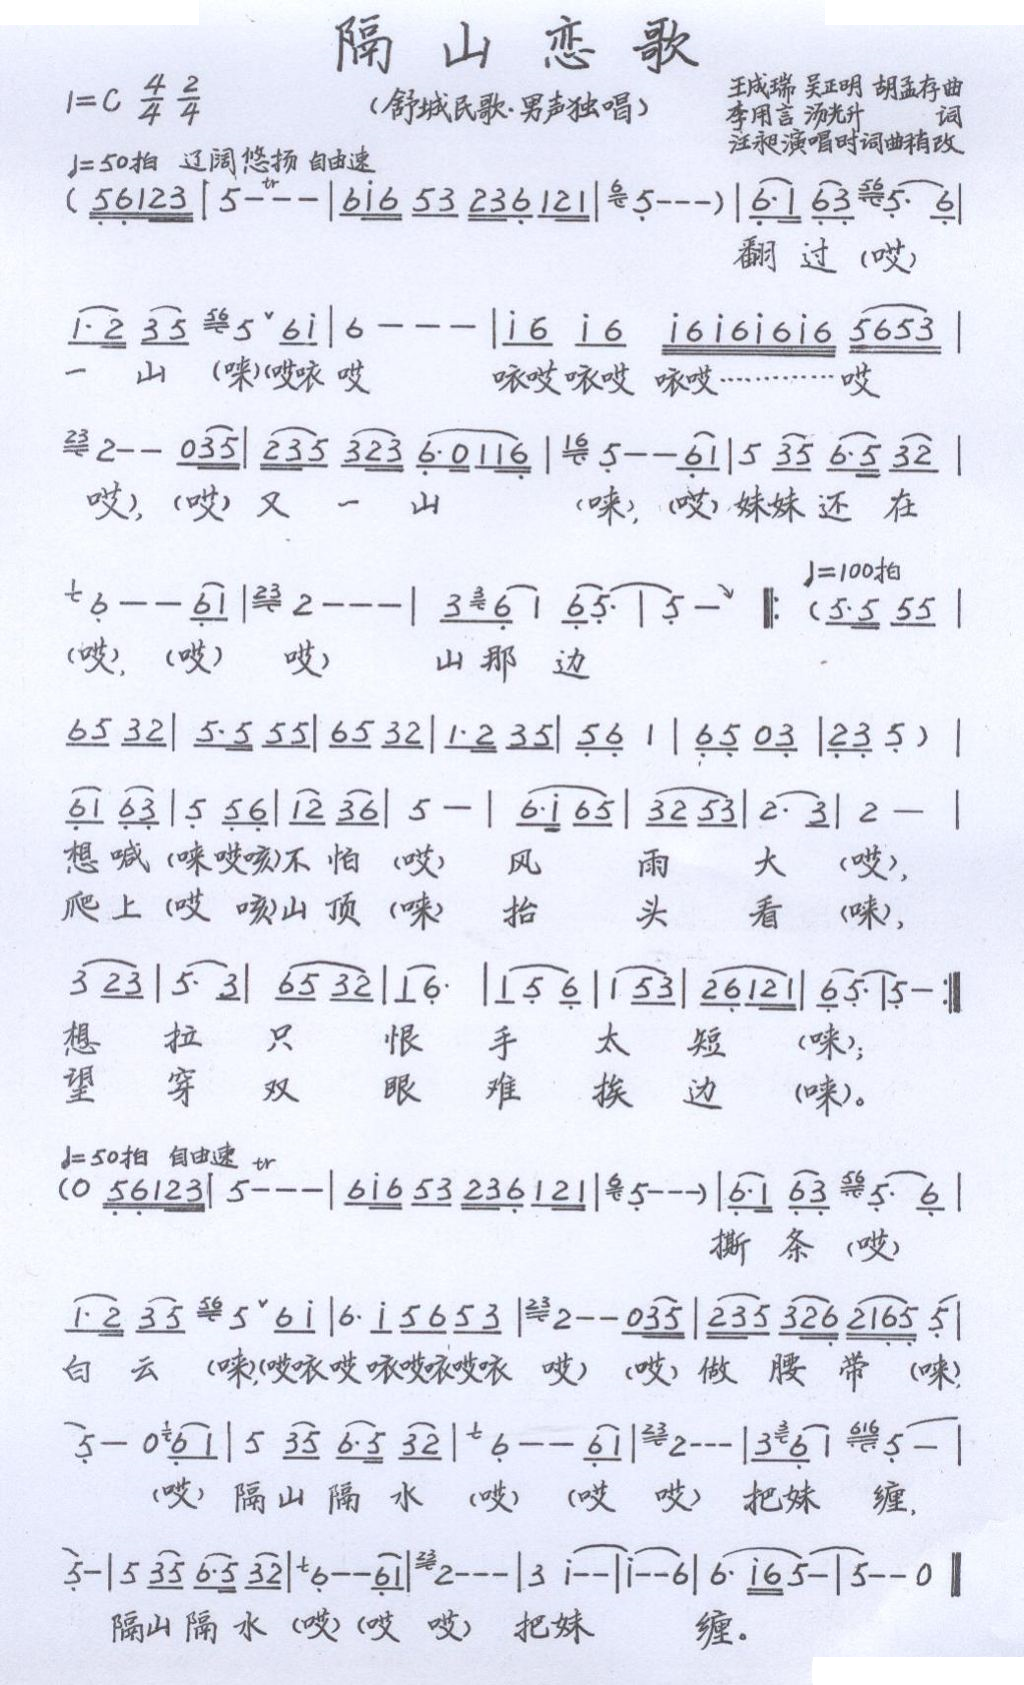 隔山恋歌
1=C 4/4 2/4
(舒城民歌·男声独唱)
王成瑞 吴正明 胡孟存曲
李用言 汤光升 词
汪昶演唱时词曲稍改
♩=50拍 辽阔悠扬 自由速
( 56123 | 5--- | 6i6 53 236 121 | 6 5--- ) | 6·1 63 56 5· 6 |
tr
翻过(哎)
1·2 35 56 5 ˅ 6i | 6 --- | i6 i6 i6i6i6i6 5653 |
一山(唻)(哎咴哎 咴哎咴哎 咴哎…………哎
23 2-- 035 | 235 323 6·0116 | 16 5--61 | 5 35 6·5 32 |
哎),(哎)又一山(唻),(哎)妹妹还在
1 6--61 | 23 2--- | 3 3 6 1 65· | 5- ‖: (5·5 55 |
♩=100拍
(哎),(哎)哎)山那边
65 32 | 5·5 55 | 65 32 | 1·2 35 | 56 1 | 65 03 | 23 5 ) |
61 63 | 5 56 | 12 36 | 5 - | 6·i 65 | 32 53 | 2· 3 | 2 - |
想喊(唻哎咳)不怕(哎)风雨大(哎),
爬上(哎咳)山顶(唻)抬头看(唻),
3 23 | 5· 3 | 65 32 | 1 6· | 1 5 6 | 1 53 | 26121 | 65· | 5- :‖
想拉只恨手太短(唻);
望穿双眼难挨边(唻)。
♩=50拍 自由速 tr
(0 56123 | 5--- | 6i6 53 236 121 | 6 5--- ) | 6·1 63 56 5· 6 |
撕条(哎)
1·2 35 56 5 ˅ 6i | 6·i 5653 | 23 2--035 | 235 326 2165 5 |
白云(唻),(哎咴哎咴哎咴哎咴 哎)(哎)做腰带(唻),
5- 0 1 61 | 5 35 6·5 32 | 1 6--61 | 23 2--- | 3 3 6 1 616 5 - |
(哎)隔山隔水(哎)(哎哎)把妹缠,
5- | 5 35 6·5 32 | 1 6--61 | 23 2--- | 3 i-- | i--6 | 6· i6 5- | 5--0 ‖
隔山隔水(哎)(哎哎)把妹缠。